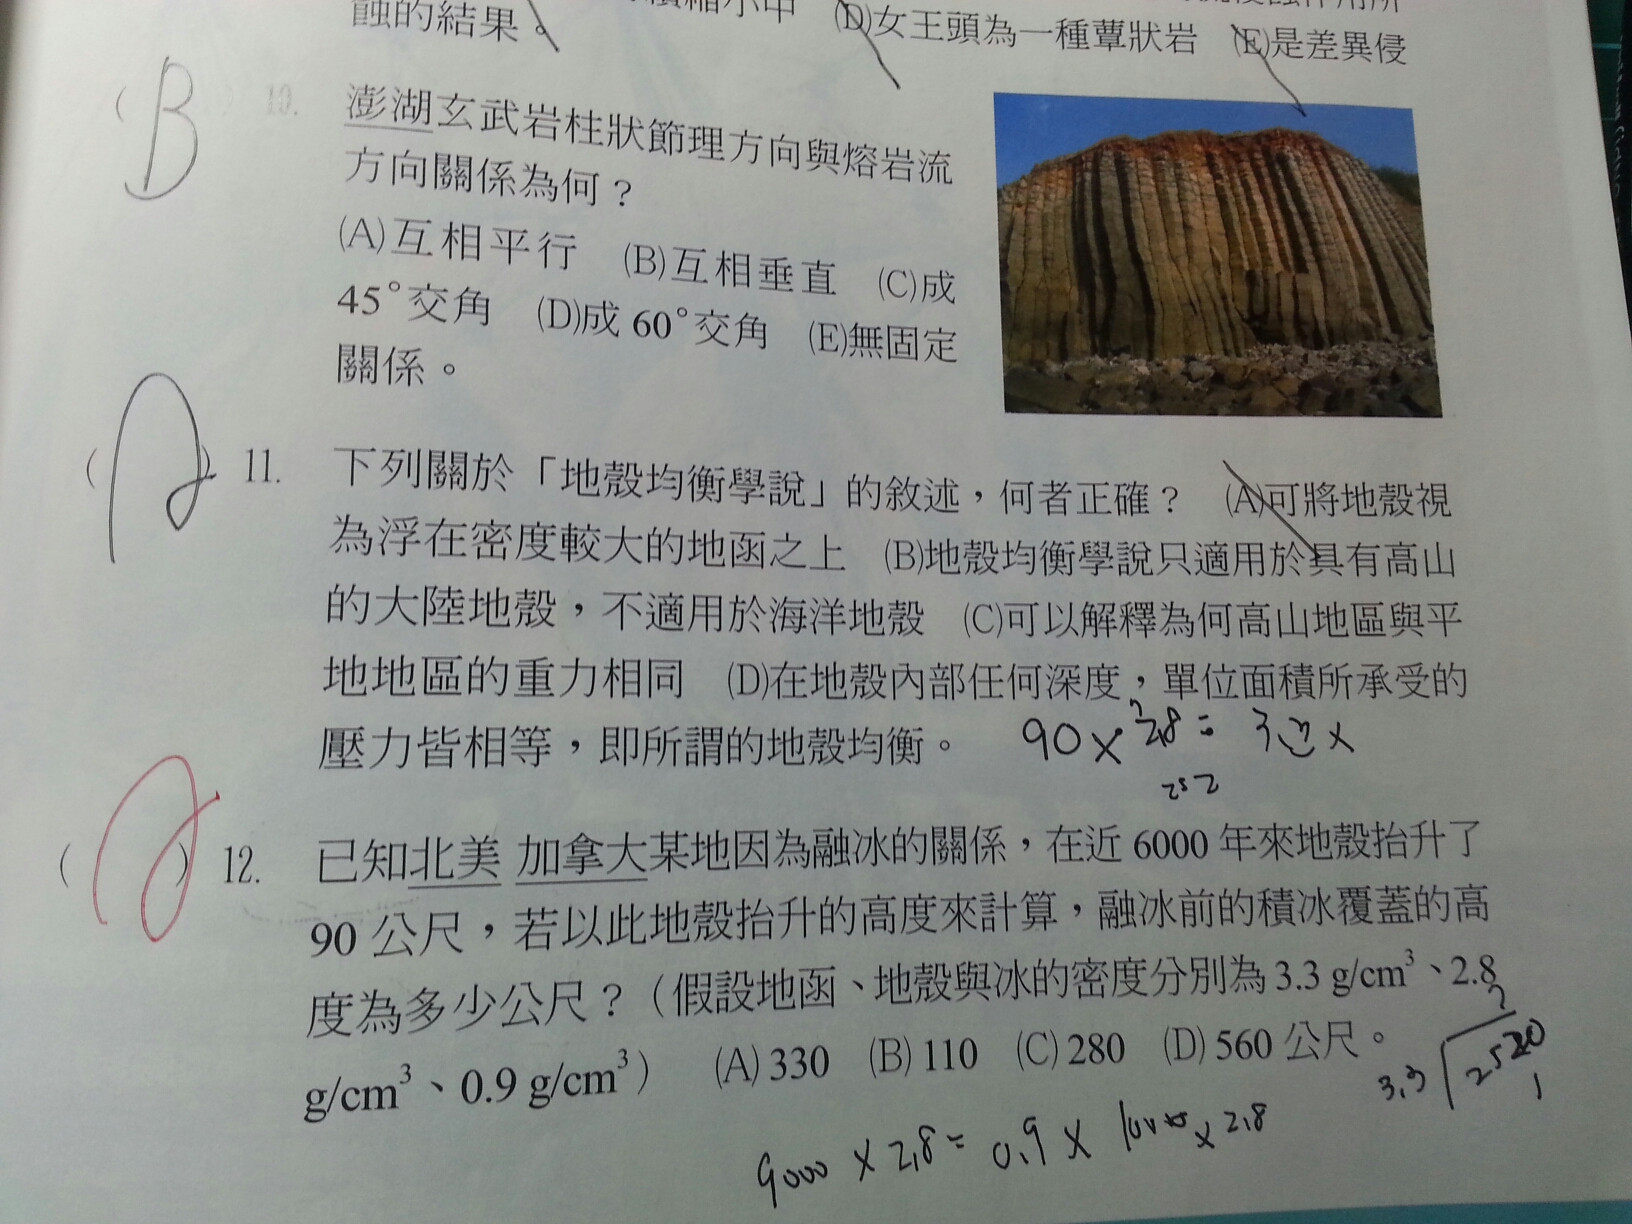 蝕的結果。 (D)女王頭為一種蕈狀岩 (E)是差異侵
(B) 10. 澎湖玄武岩柱狀節理方向與熔岩流
方向關係為何？
(A)互相平行 (B)互相垂直 (C)成
45°交角 (D)成 60°交角 (E)無固定
關係。
( ) 11. 下列關於「地殼均衡學說」的敘述，何者正確？ (A)可將地殼視
為浮在密度較大的地函之上 (B)地殼均衡學說只適用於具有高山
的大陸地殼，不適用於海洋地殼 (C)可以解釋為何高山地區與平
地地區的重力相同 (D)在地殼內部任何深度，單位面積所承受的
壓力皆相等，即所謂的地殼均衡。
90 × 2.8 =
252
( ) 12. 已知北美 加拿大某地因為融冰的關係，在近 6000 年來地殼抬升了
90 公尺，若以此地殼抬升的高度來計算，融冰前的積冰覆蓋的高
度為多少公尺？（假設地函、地殼與冰的密度分別為 3.3 g/cm³、2.8
g/cm³、0.9 g/cm³） (A) 330 (B) 110 (C) 280 (D) 560 公尺。
3.3 2520
9000 × 2.8 = 0.9 × × 2.8